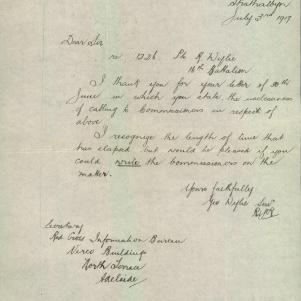 Strathalbyn
July 3rd 1917
Dear Sir
re 1726 Pte R Wylie
16th Battalion
I thank you for your letter of 30th
June in which you state the uselessness
of calling to Commissioners in respect of
above
I recognize the length of time that
has elapsed but would be pleased if you
could write the Commissioners on the
matter.
Yours faithfully
Geo Wylie Senr
Secretary
Red Cross Information Bureau
Verco Buildings
North Terrace
Adelaide